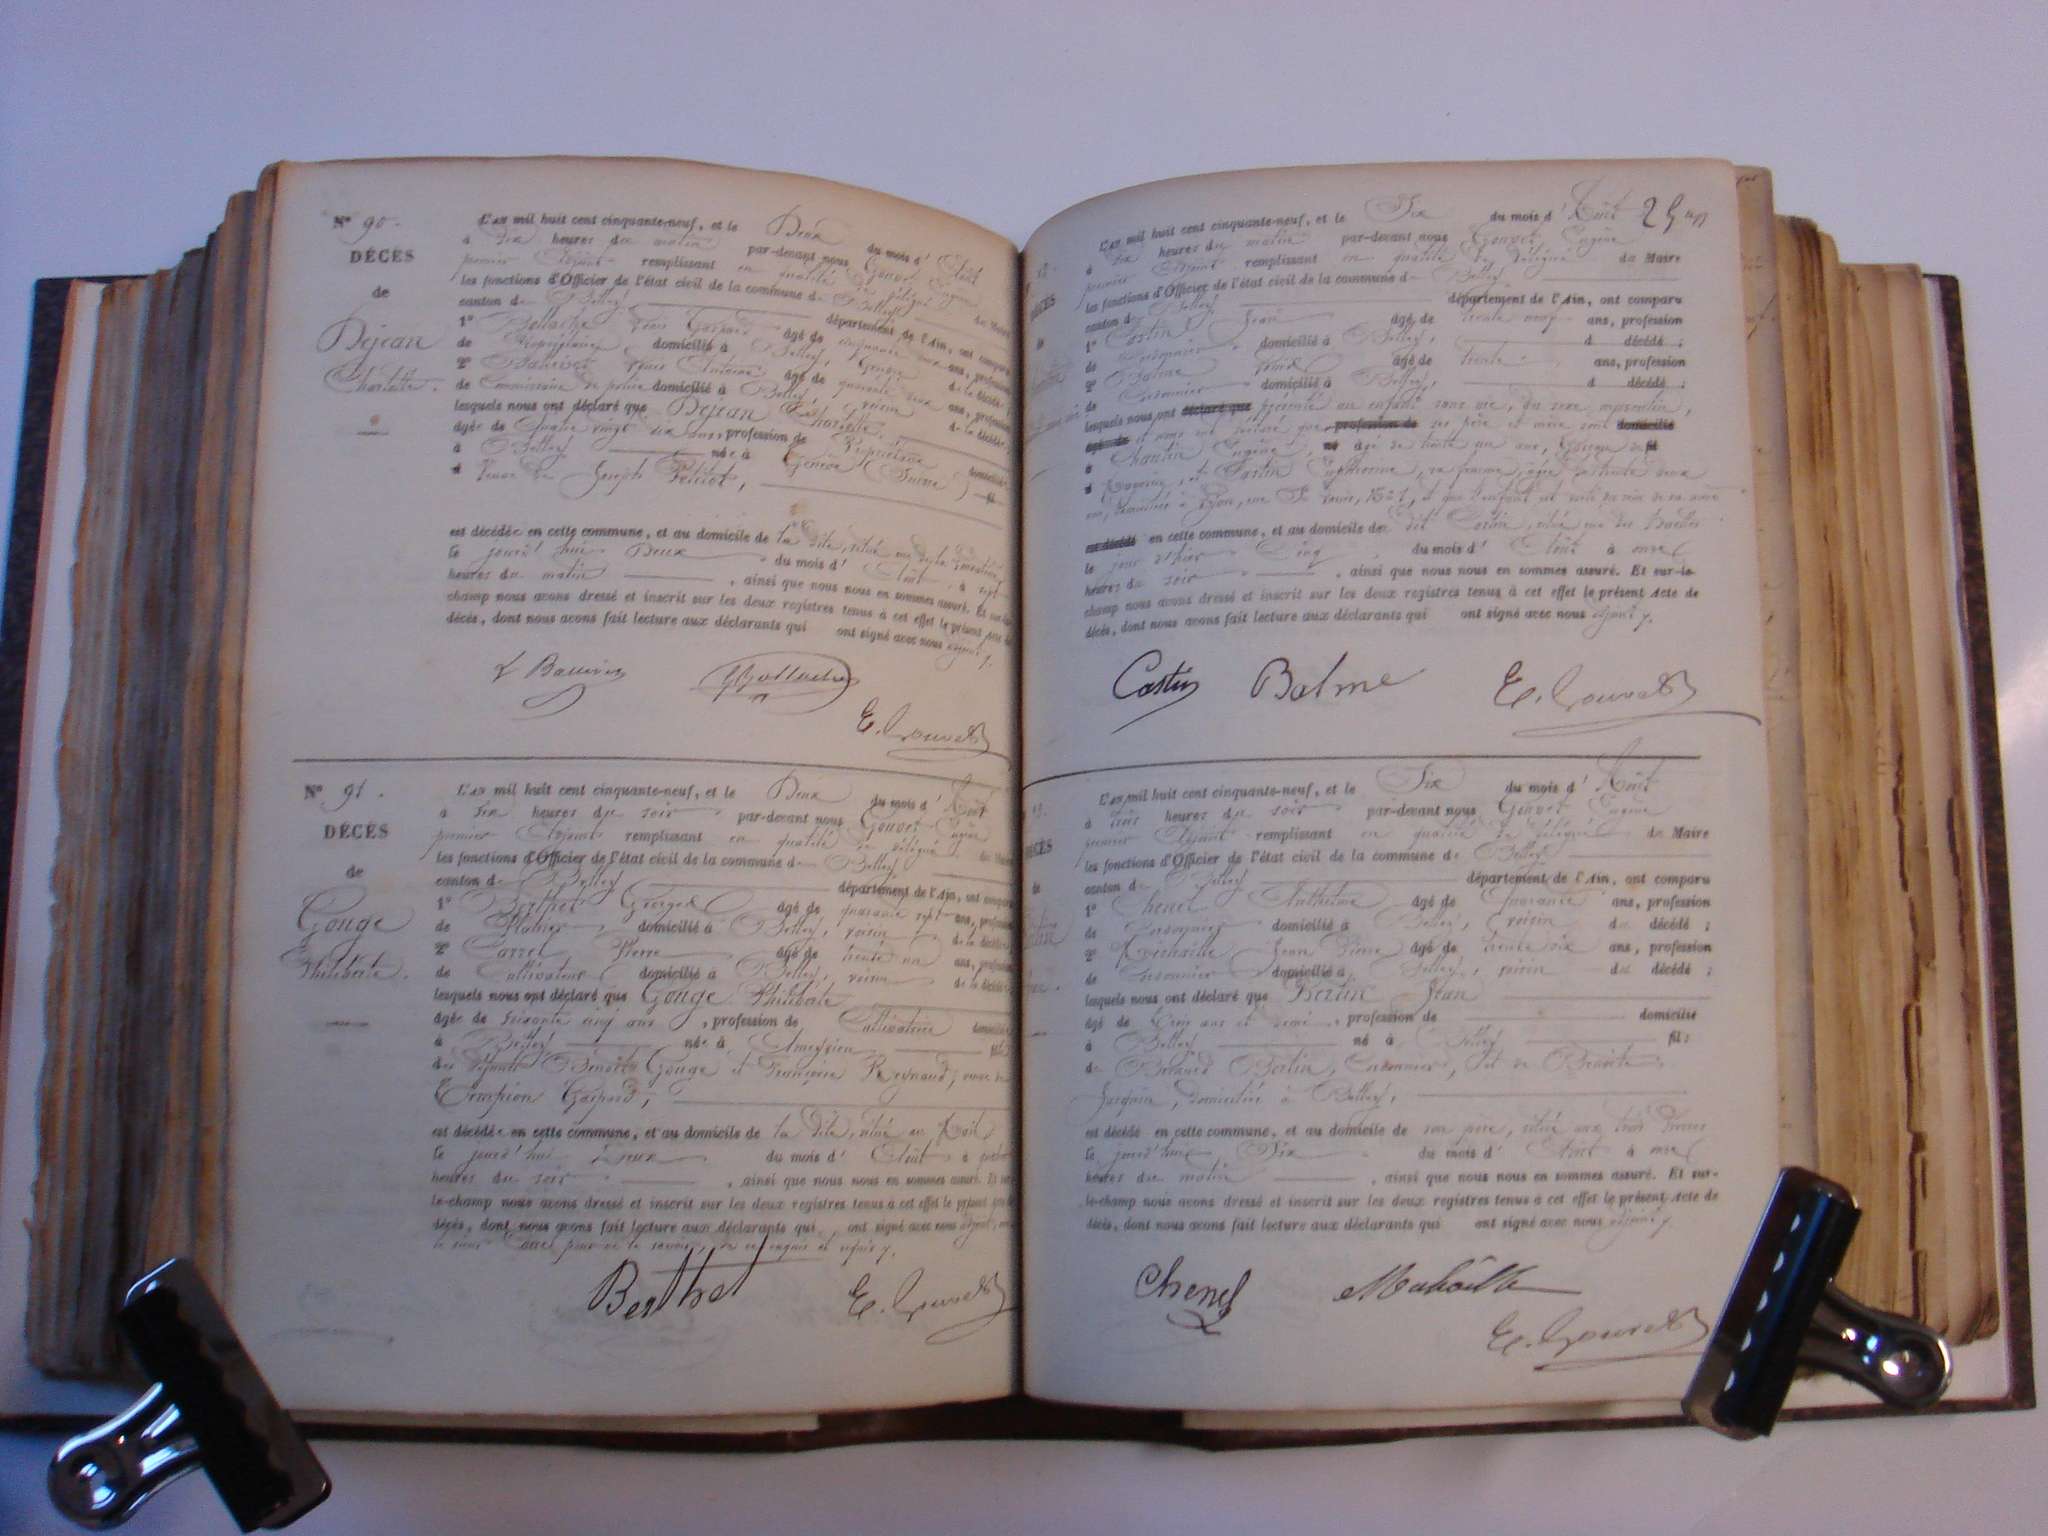 Nº 90.
DÉCÈS
de
Dejean
Charlotte.
L'AN mil huit cent cinquante-neuf, et le Deux du mois d'Août
à dix heures du matin par-devant nous Gouvet Eugène
premier Adjoint remplissant en qualité de délégué du Maire
les fonctions d'Officier de l'état civil de la commune de Belley
canton de Belley département de l'Ain, ont comparu
1º Louis Gaspard âgé de cinquante ans, profession
de Propriétaire domicilié à Belley, de la décédée;
2º Louis Antoine âgé de quarante deux ans, profession
de Commissaire de police domicilié à Belley, voisin de la décédée;
lesquels nous ont déclaré que Dejean Charlotte.
âgée de Quatre vingt dix ans, profession de Propriétaire domiciliée
à Belley née à Genève (Suisse) fil
d Veuve de Joseph
est décédée en cette commune, et au domicile de la dite, située rue
le jourd'hui Deux du mois d'Août à sept
heures du matin, ainsi que nous nous en sommes assuré. Et sur-le-
champ nous avons dressé et inscrit sur les deux registres tenus à cet effet le présent Acte de
décès, dont nous avons fait lecture aux déclarants qui ont signé avec nous adjoint.
E. Gouvet
Nº 91.
DÉCÈS
de
Gouge
Philiberte.
L'AN mil huit cent cinquante-neuf, et le Deux du mois d'Août
à six heures du soir par-devant nous Gouvet Eugène
premier Adjoint remplissant en qualité de délégué du Maire
les fonctions d'Officier de l'état civil de la commune de Belley
canton de Belley département de l'Ain, ont comparu
1º Berthet Georges âgé de quarante sept ans, profession
de Plâtrier, domicilié à Belley, voisin de la décédée;
2º Carrel Pierre âgé de trente un ans, profession
de Cultivateur domicilié à Belley, voisin de la décédée
lesquels nous ont déclaré que Gouge Philiberte
âgée de Soixante cinq ans, profession de Cultivatrice domiciliée
à Belley née à Ameyzieu fille
des défunts Benoît Gouge et Françoise Reynaud, veuve de
Gaspard,
est décédée en cette commune, et au domicile de la dite, située au
le jourd'hui Deux du mois d'Août à
heures du soir, ainsi que nous nous en sommes assuré. Et sur-
le-champ nous avons dressé et inscrit sur les deux registres tenus à cet effet le présent Acte de
décès, dont nous avons fait lecture aux déclarants qui ont signé avec nous adjoint,
le sieur Carrel pour ne le savoir, de ce enquis et requis.
Berthet E. Gouvet
L'AN mil huit cent cinquante-neuf, et le Six du mois d'Août
à dix heures du matin par-devant nous Gouvet Eugène
premier Adjoint remplissant en qualité de délégué du Maire
les fonctions d'Officier de l'état civil de la commune de Belley
canton de Belley département de l'Ain, ont comparu
1º Castin Jean âgé de trente neuf ans, profession
de Cordonnier domicilié à Belley, d décédé;
2º Balme Louis âgé de trente ans, profession
de Cordonnier domicilié à Belley, d décédé;
lesquels nous ont déclaré que présenté un enfant sans vie, du sexe masculin,
âgé de et nous ont déclaré que profession de ses père et mère sont domicilié
à Eugène, né âgé de trente un ans, fil
d et Castin Euphrosine, sa femme, âgée de trente deux
ans, domiciliés à Lyon, rue St et que l'enfant est sorti du sein de sa mère
est décédé en cette commune, et au domicile du dit Castin, situé rue des
le jour d'hier Cinq du mois d'Août à onze
heures du soir, ainsi que nous nous en sommes assuré. Et sur-le-
champ nous avons dressé et inscrit sur les deux registres tenus à cet effet le présent Acte de
décès, dont nous avons fait lecture aux déclarants qui ont signé avec nous adjoint.
Castin Balme E. Gouvet
L'AN mil huit cent cinquante-neuf, et le Six du mois d'Août
à trois heures du soir par-devant nous Gouvet Eugène
premier Adjoint remplissant en qualité de délégué du Maire
les fonctions d'Officier de l'état civil de la commune de Belley
canton de Belley département de l'Ain, ont comparu
1º Chenel Anthelme âgé de Quarante ans, profession
de Cordonnier domicilié à Belley, voisin du décédé;
2º Jean Pierre âgé de trente six ans, profession
de Cordonnier domicilié à Belley, voisin du décédé;
lesquels nous ont déclaré que Bertin Jean
âgé de Trois ans et demi, profession de domicilié
à Belley né à Belley fils
de Bertin, Cordonnier, et de Benoîte
domiciliés à Belley,
est décédé en cette commune, et au domicile de son père, situé aux trois
le jourd'hui Six du mois d'Août à onze
heures du matin, ainsi que nous nous en sommes assuré. Et sur-
le-champ nous avons dressé et inscrit sur les deux registres tenus à cet effet le présent Acte de
décès, dont nous avons fait lecture aux déclarants qui ont signé avec nous adjoint.
Chenel
E. Gouvet